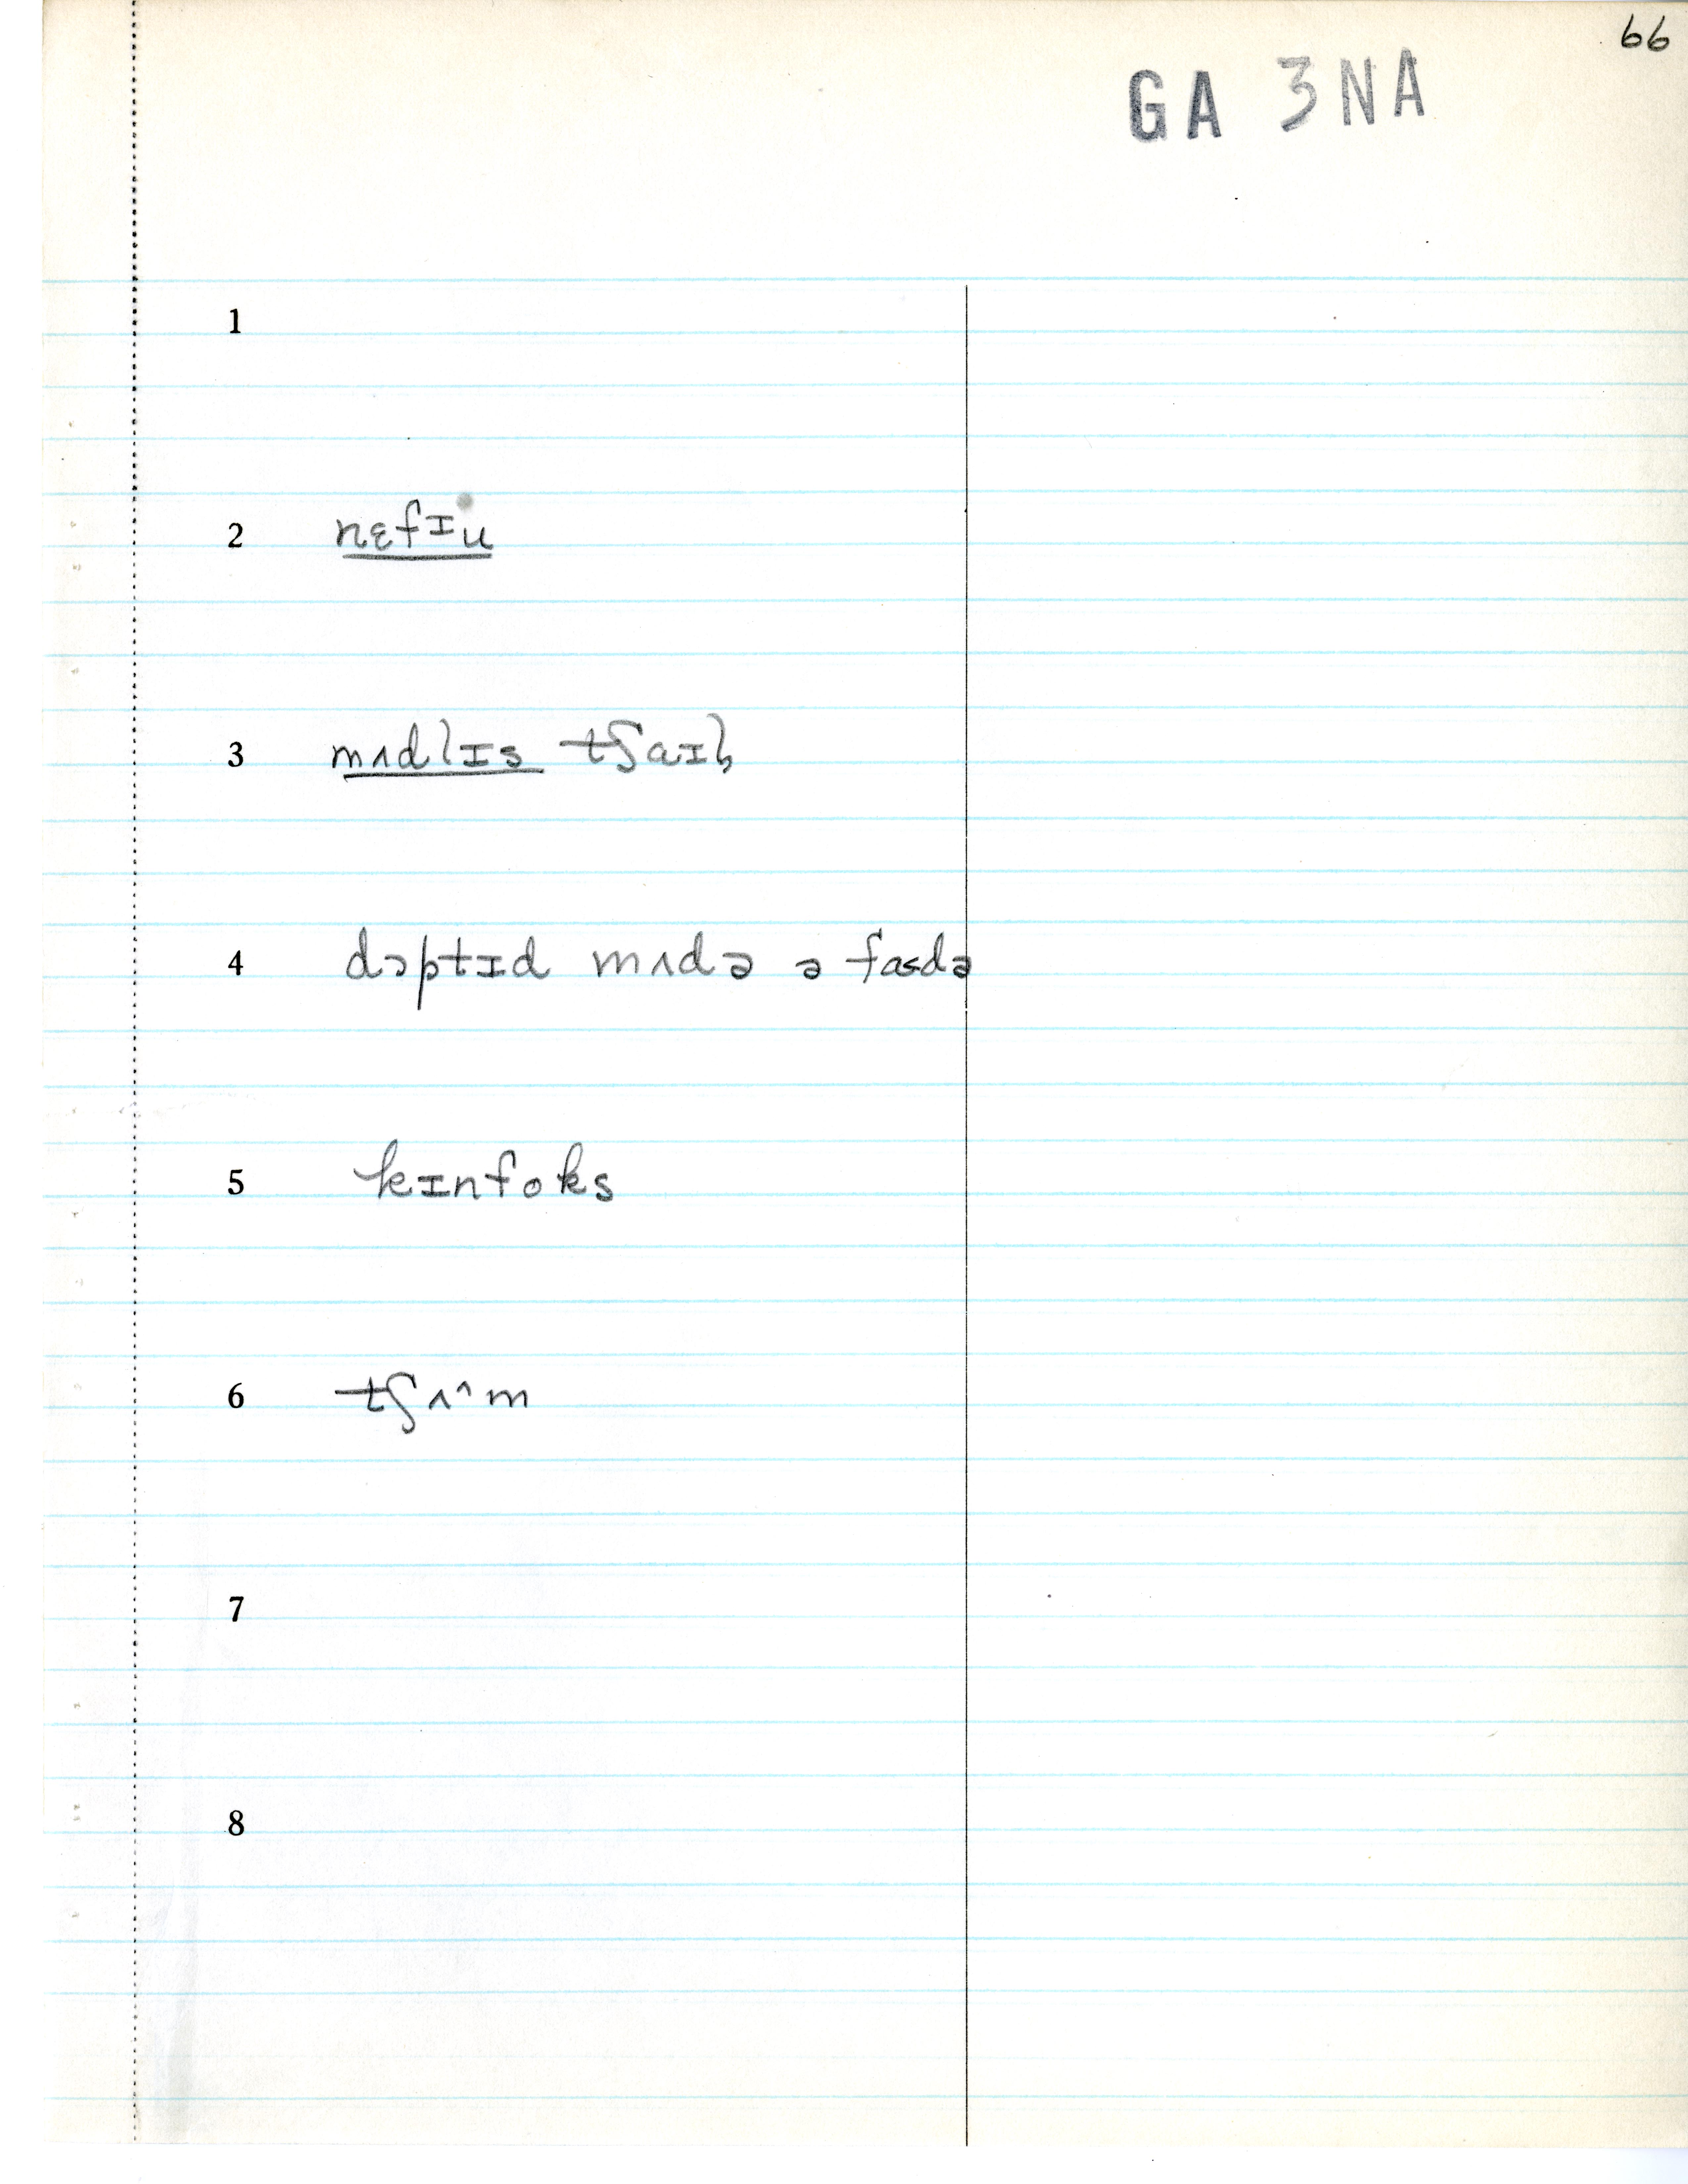 66
GA 3NA
1
2 nɛfɪu
3 mʌdlɪs tʃaɪl̥
4 dɔptɪd mʌdə ə fɑ˂də
5 kɪnfoks
6 tʃʌ^m
7
8